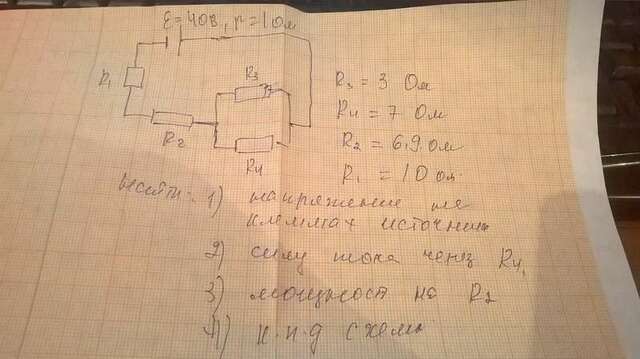 Ɛ=40В, r=1Ом
R₁
R₃
R₂
R₄
R₃ = 3 Ом
R₄ = 7 Ом
R₂ = 6,9 Ом
R₁ = 10 Ом
Найти: 1) напряжение на
клеммах источник
2) силу тока через R₄,
3) мощност на R₂
4) к.п.д схемы